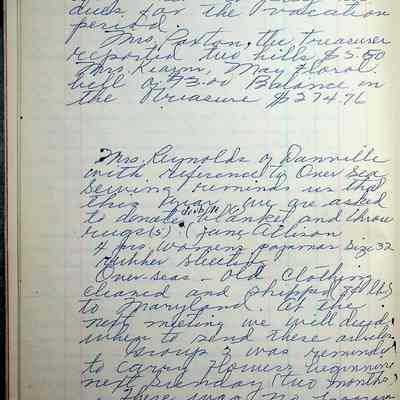 dues for the vacation
period.
Mrs. Paxton, the treasurer
reported two bills $5.50
Mrs. Kearn, May Floral
bill of $3.00 Balance in
the Treasure $274.96
Mrs. Reynolds of Danville
with reference to Over Sea
Sewing reminds us that
this year we are asked
to donate double blanket and throw
rugs(s) (Jane Allison
4 prs. womens pajamas size 32
rubber sheeting
Over-seas - Old Clothing
cleaned and shipped lbs
to Maryland. At the
next meeting we will decide
when to send these articles
Group 2 was reminded
to carry flowers beginning
next Sunday (two months)
There was no